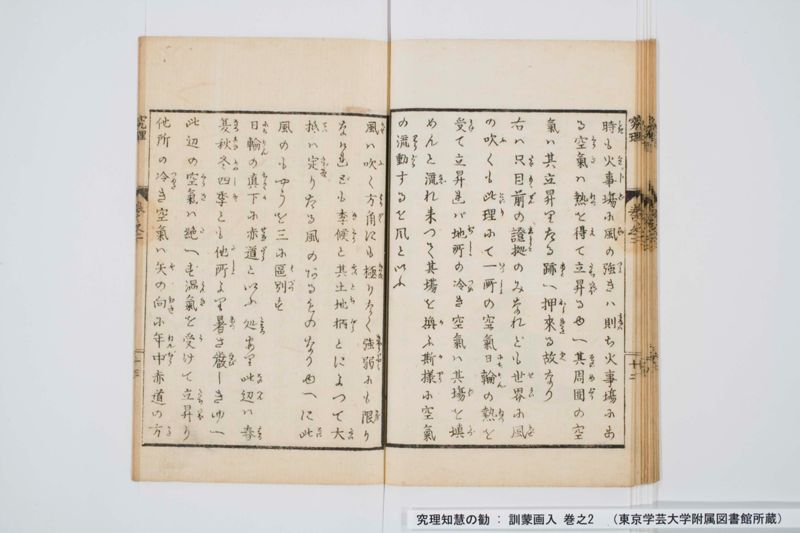 時も火事場に風の強きハ則ち火事場にあ
る空氣ハ熱を得て立昇るゆへ其周囲の空
氣ハ其立昇りたる跡へ押来る故なり
右ハ只目前の證拠のみなれども世界に風
の吹くも此理にて一所の空氣日輪の熱を
受て立昇れバ地所の冷き空氣ハ其場を填
めんと流れ来つて其場を換ふ斯様に空氣
の流動するを風と以ふ
風ハ吹く方角にも極りなく強弱にも限り
なけれども季候と其土地柄とによつて大
抵ハ定りたる風のあるものなりゆへに此
風のもやうを三に区別す
日輪の真下に赤道と以ふ処あり此辺ハ春
夏秋冬四季とも他所より暑さ厳しきゆへ
此辺の空氣ハ絶へず温氣を受けて立昇り
他所の冷き空氣ハ矢の向に年中赤道の方
究理
巻之二
十二
究理
巻之二
究理知慧の勧 : 訓蒙画入 巻之2 （東京学芸大学附属図書館所蔵）